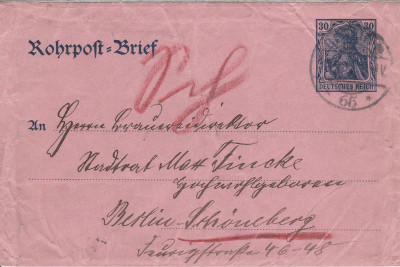 30 30
Rohrpost-Brief
DEUTSCHES REICH
66 *
An Herrn Brauereidirektor
Stadtrat Max Fincke
Hochwohlgeboren
Berlin-Schöneberg
Feurigstraße 46-48